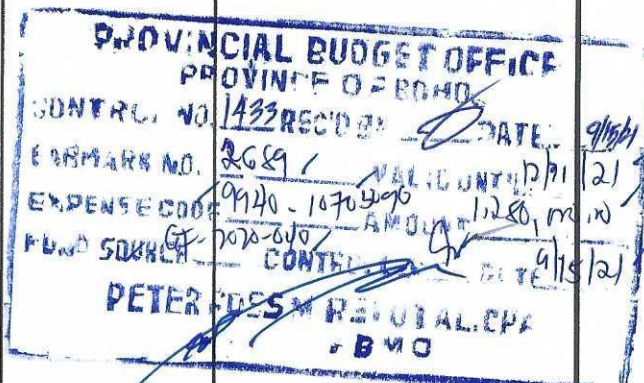 PROVINCIAL BUDGET OFFICE
PROVINCE OF BOHO
CONTROL NO. 1433 REC'D BY DATE 9/15/21
EARMARK NO. 2689 VALID UNTIL 12/31/21
EXPENSE CODE 9940-1070 AMOUNT
FUND SOURCE GF-2020-040 DATE 9/15/21
PETER ROSS M RETUTAL, CPA
PBMO